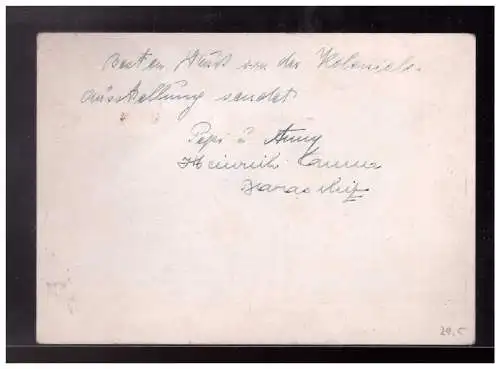 Besten Gruß von der Kolonial-
ausstellung sendet
Pepi u Anny
Heinrich
29.5